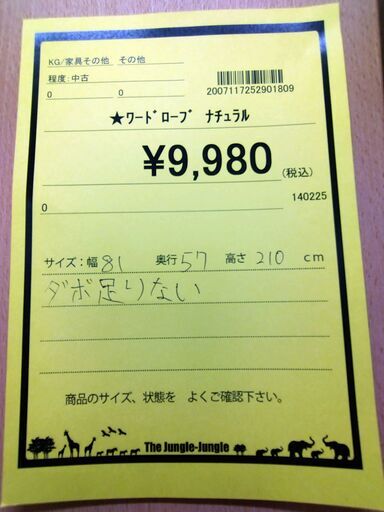 KG/家具その他 その他
程度:中古
0 0
2007117252901809
★ワードローブ ナチュラル
¥9,980(税込)
0 140225
サイズ:幅 81 奥行 57 高さ 210 cm
ダボ足りない
商品のサイズ、状態を よくご確認下さい。
The Jungle-Jungle